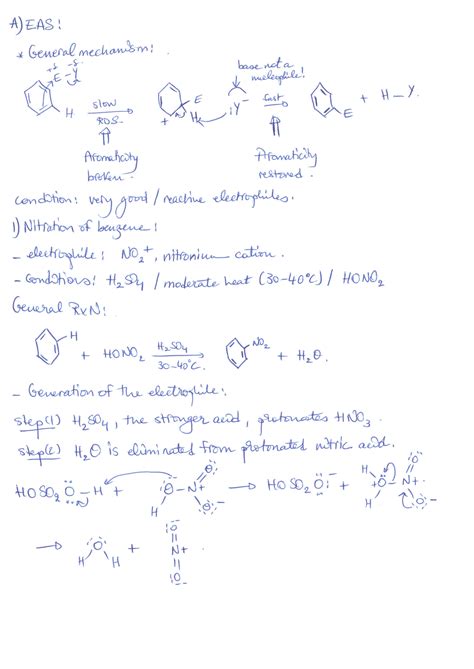 A) EAS:
* General mechanism:
base not a nucleophile!
+δ -δ
E – Y
H
slow
RDS
E
+
H
:Y⁻
fast
E
+ H – Y
Aromaticity broken.
Aromaticity restored.
condition: very good / reactive electrophiles.
1) Nitration of benzene:
- electrophile: NO₂⁺, nitronium cation.
- Conditions: H₂SO₄ / moderate heat (30-40°C) / HONO₂
General RxN:
H + HONO₂ H₂SO₄ 30-40°C. NO₂ + H₂O.
- Generation of the electrophile:
step(1) H₂SO₄, the stronger acid, protonates HNO₃.
step(2) H₂O is eliminated from protonated nitric acid.
HOSO₂O – H + H O – N + O O⁻ → HOSO₂O:⁻ + H H O – N+ O O⁻
→ H O H + O N+ O